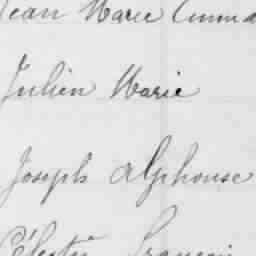 Jean Marie Emma
Julien Marie
Joseph Alphonse
Célestin François